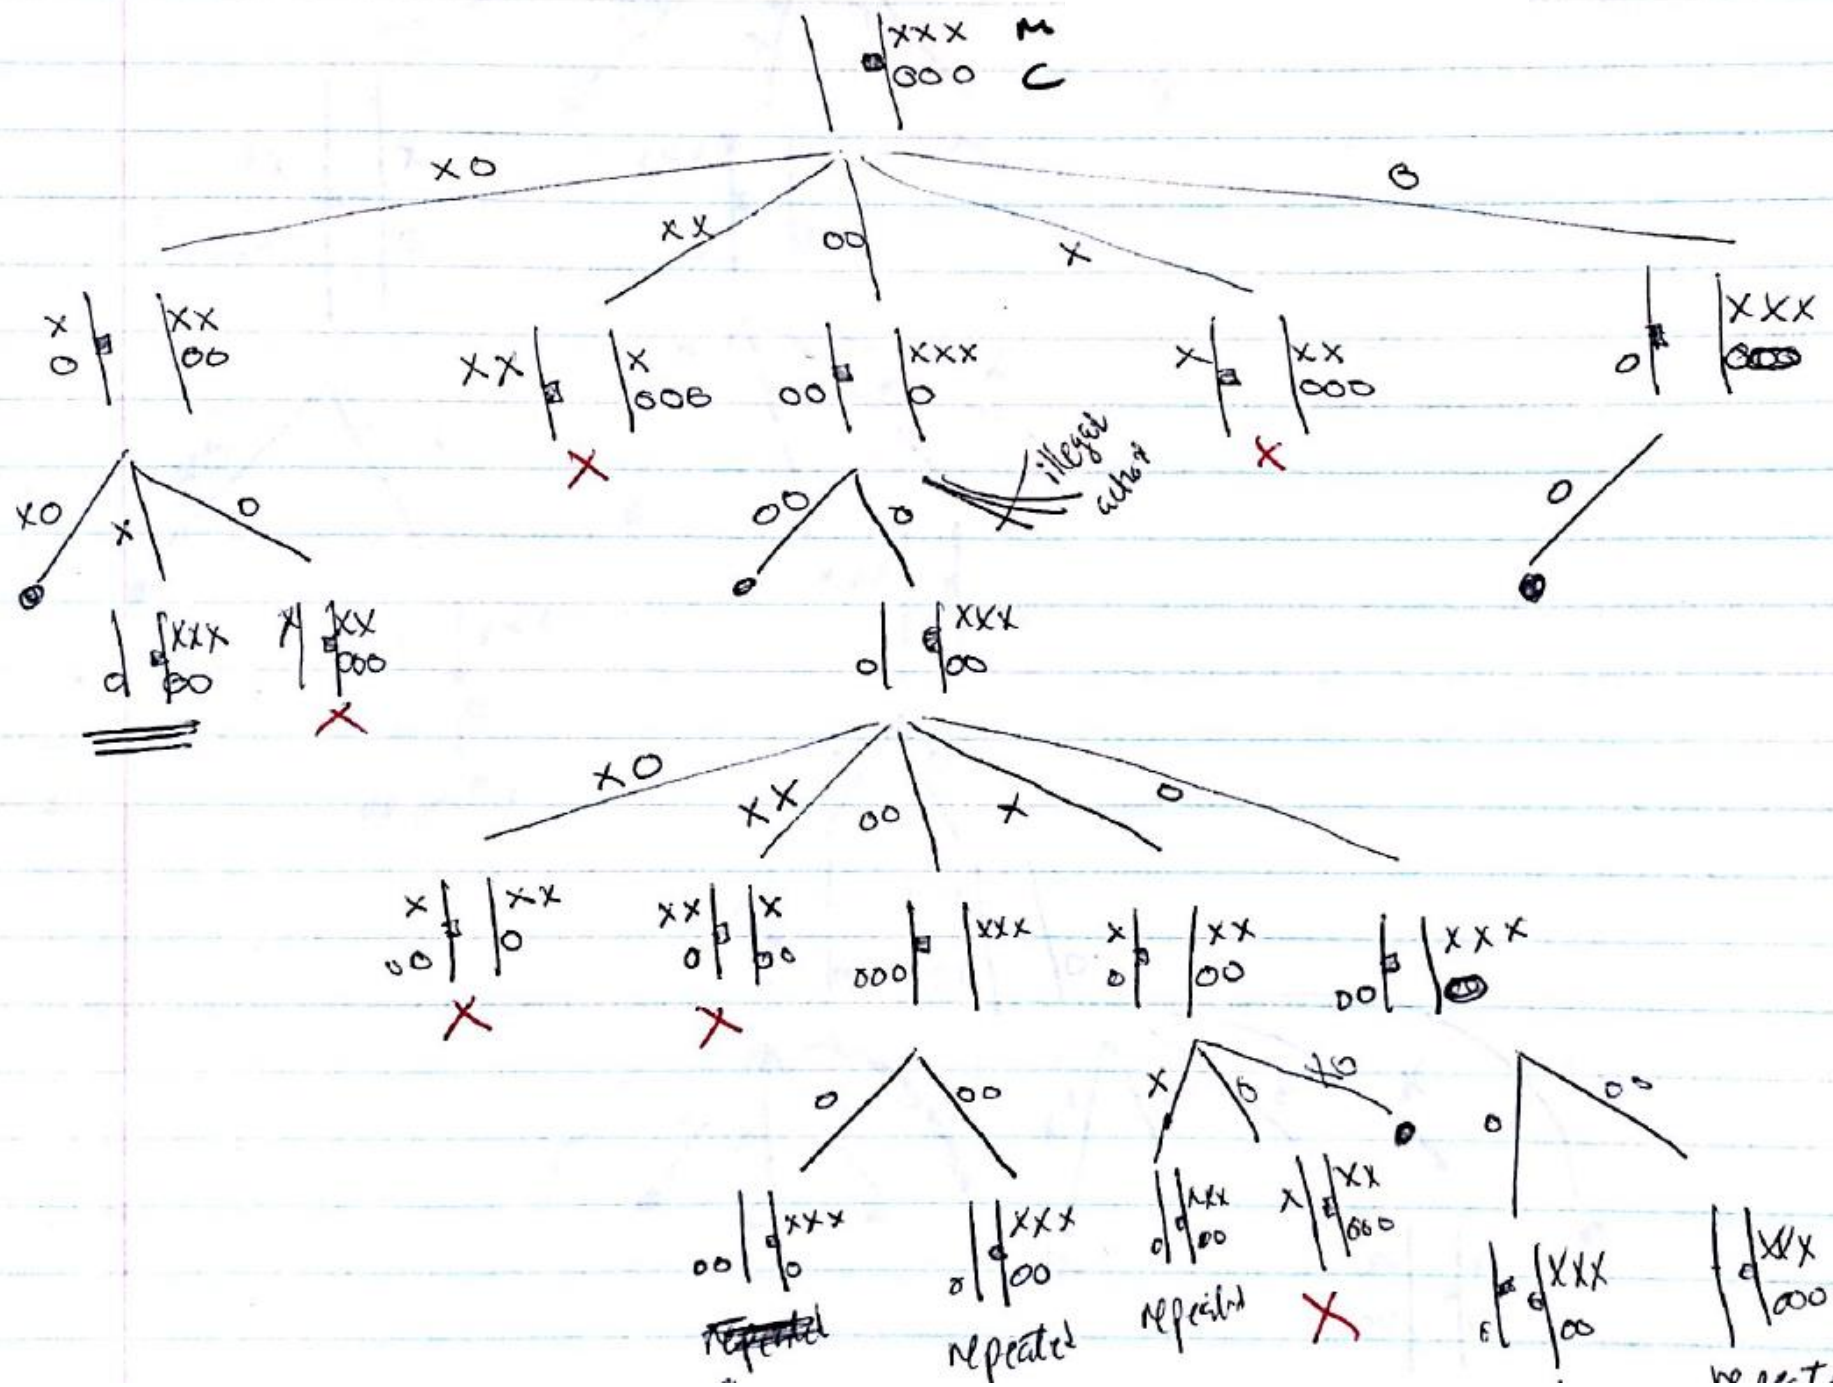 xxx M
ooo C
xo
xx
oo
x
o
x
o
xx
oo
xx
x
ooo
oo
xxx
o
x
xx
ooo
o
xxx
illegal
action
xo
x
o
oo
o
o
o
xxx
oo
x
xx
ooo
o
xxx
oo
xo
xx
oo
x
o
x
oo
xx
o
xx
o
x
oo
ooo
xxx
x
o
xx
oo
oo
xxx
o
oo
x
o
xo
o
oo
oo
xxx
o
o
xxx
oo
o
xxx
oo
x
xx
ooo
o
xxx
oo
xxx
ooo
repeated
repeated
repeated